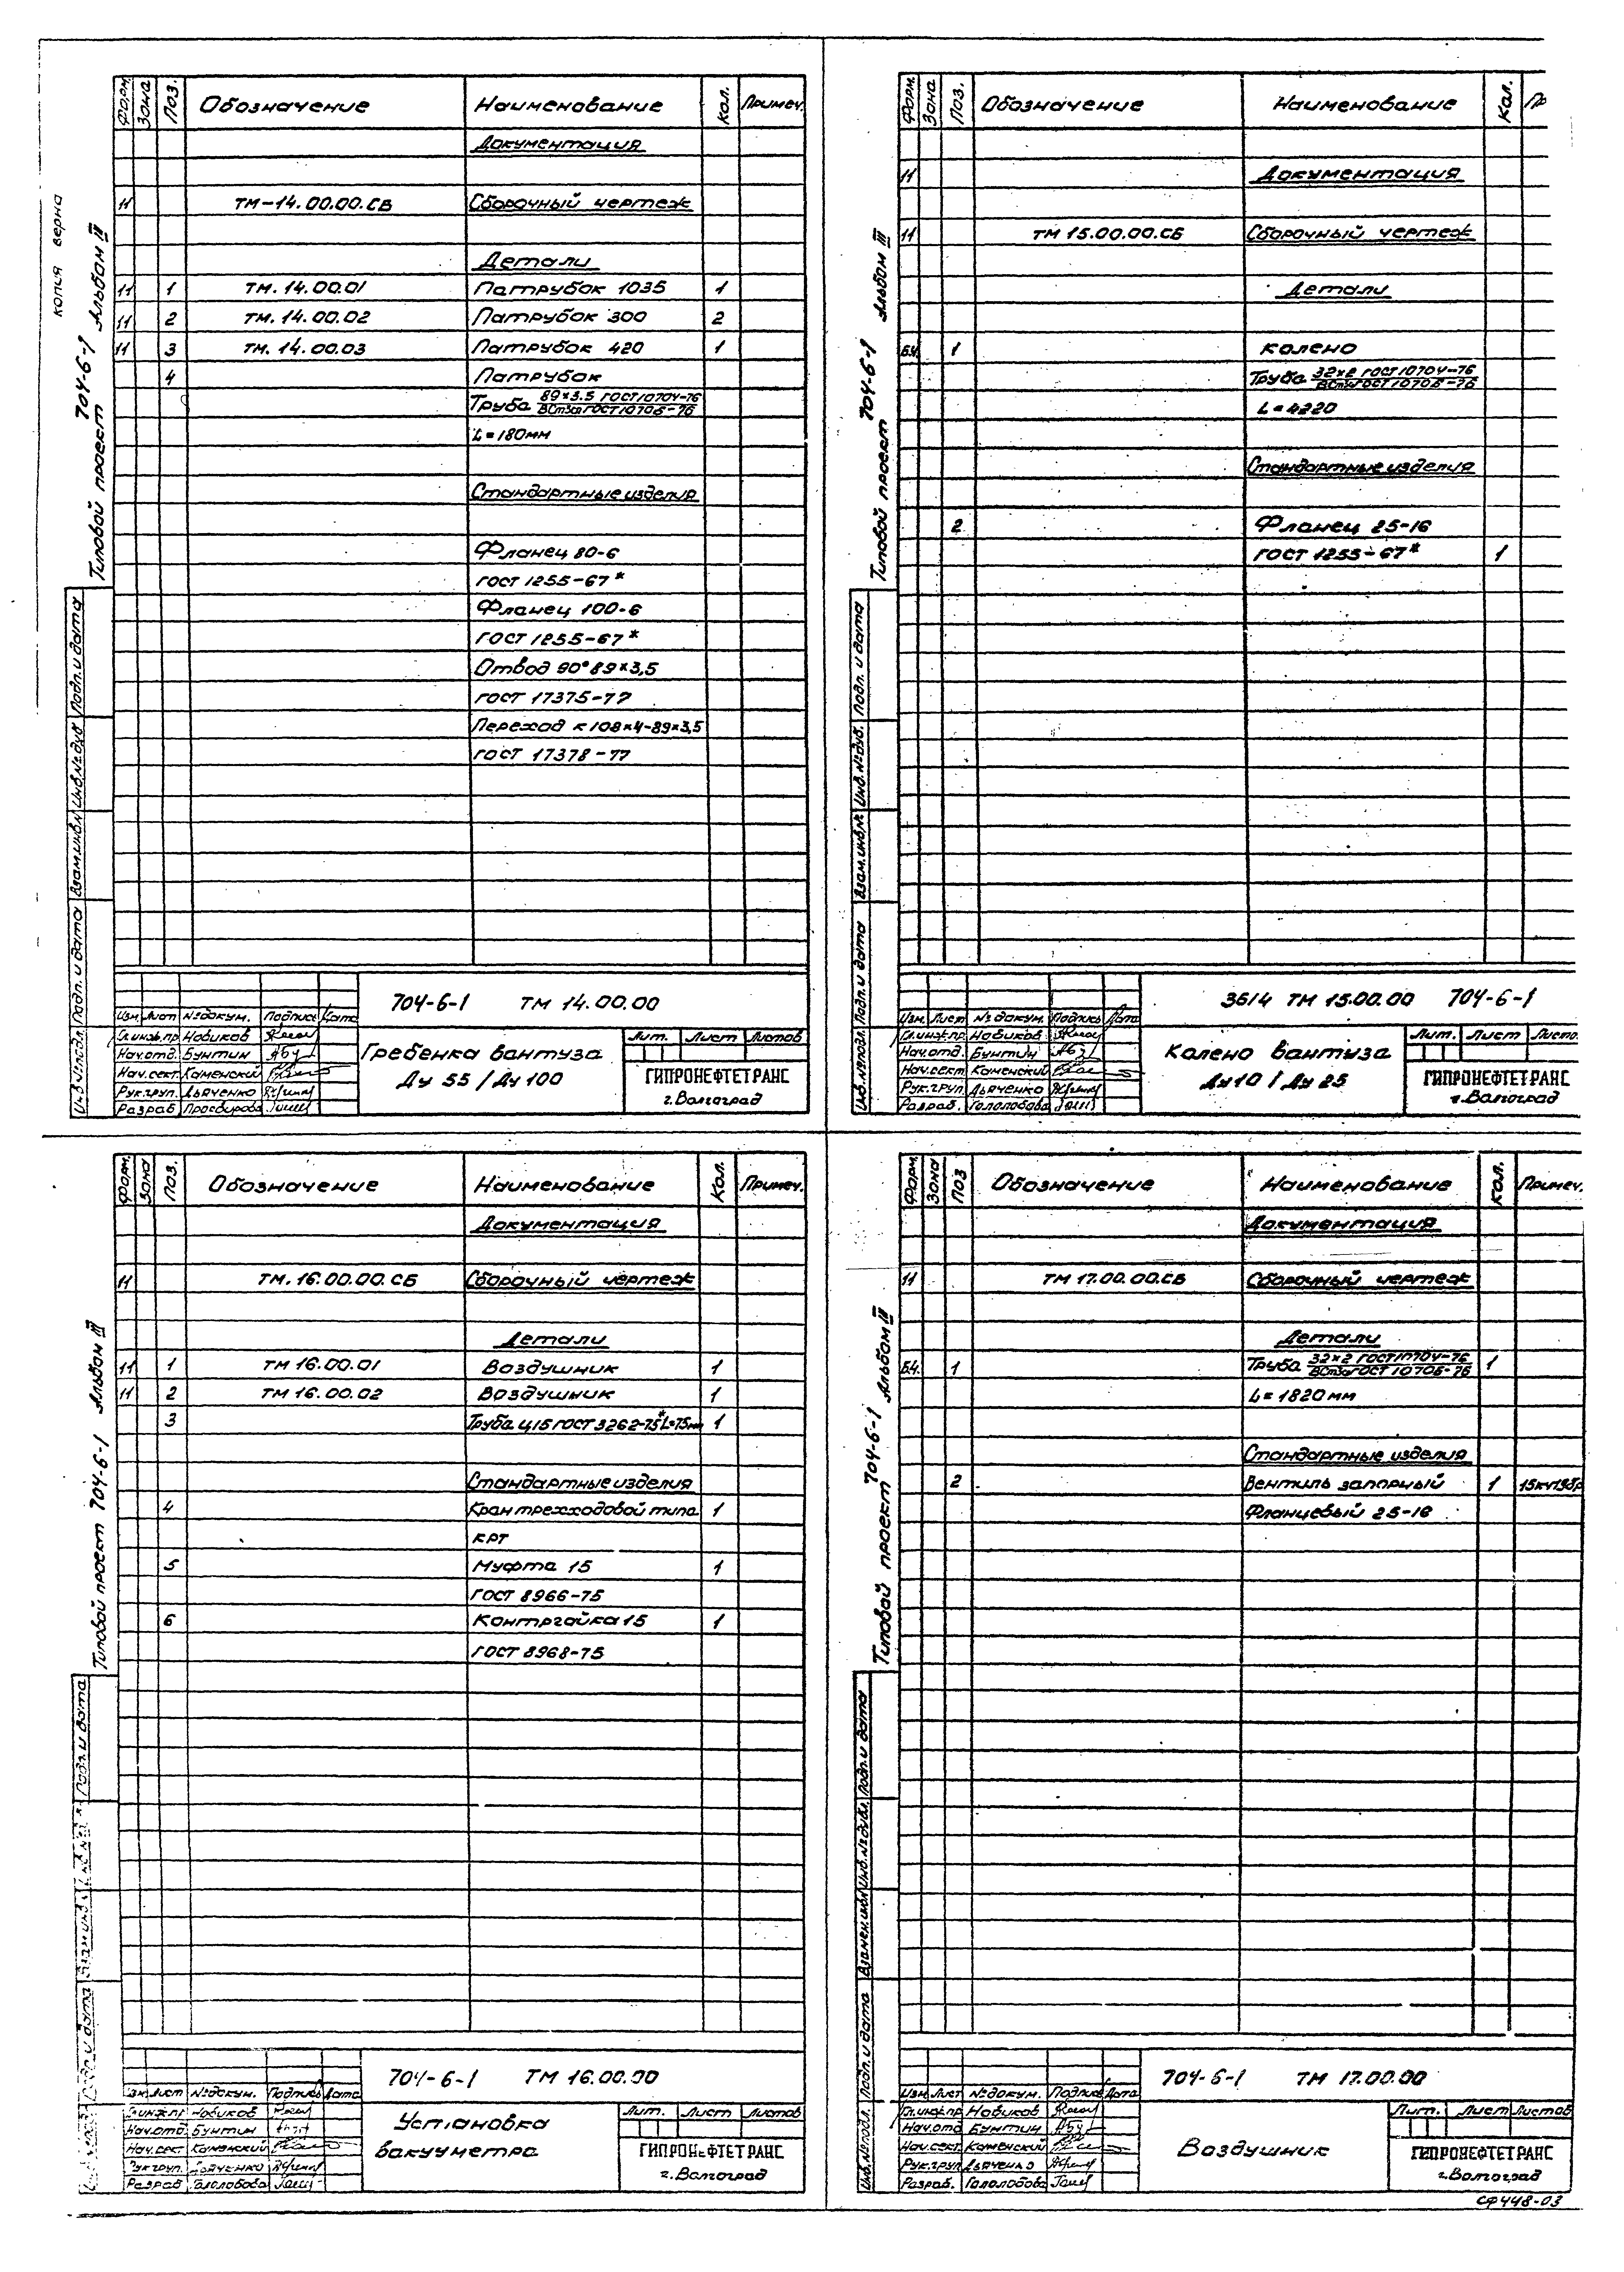 копия верна
Типовой проект 704-6-1 Альбом III
Форм. Зона Поз. Обозначение Наименование Кол. Примеч.
Документация
11 ТМ-14.00.00.СБ Сборочный чертеж
Детали
11 1 ТМ.14.00.01 Патрубок 1035 1
11 2 ТМ.14.00.02 Патрубок 300 2
11 3 ТМ.14.00.03 Патрубок 420 1
4 Патрубок
Труба 89×3.5 ГОСТ 10704-76
ВСт3сп ГОСТ 10705-76
L=180мм
Стандартные изделия
Фланец 80-6
ГОСТ 1255-67*
Фланец 100-6
ГОСТ 1255-67*
Отвод 90° 89×3,5
ГОСТ 17375-77
Переход К 108×4-89×3,5
ГОСТ 17378-77
Инв.№подл. Подп. и дата Взам.инв.№ Инв.№дуб. Подп. и дата
704-6-1 ТМ 14.00.00
Изм. Лист №докум. Подпись Дата
Гл.инж.пр. Новиков
Нач.отд. Бунтин
Нач.сект. Каменский
Рук.груп. Дьяченко
Разраб.
Гребенка вантуза
Ду 55 / Ду 100
Лит. Лист Листов
ГИПРОНЕФТЕТРАНС
г.Волгоград
Типовой проект 704-6-1 Альбом III
Форм. Зона Поз. Обозначение Наименование Кол. Пр
11 Документация
11 ТМ 15.00.00.СБ Сборочный чертеж
Детали
БЧ. 1 Колено
Труба 32×2 ГОСТ 10704-76
ВСт3сп ГОСТ 10705-76
L=4220
Стандартные изделия
2 Фланец 25-16
ГОСТ 1255-67* 1
Инв.№подл. Подп. и дата Взам.инв.№ Инв.№дуб. Подп. и дата
3614 ТМ 15.00.00 704-6-1
Изм. Лист №докум. Подпись Дата
Гл.инж.пр. Новиков
Нач.отд. Бунтин
Нач.сект. Каменский
Рук.груп. Дьяченко
Разраб. Гололобова
Колено вантуза
Ду 10 / Ду 25
Лит. Лист Листо
ГИПРОНЕФТЕТРАНС
г.Волгоград
Типовой проект 704-6-1 Альбом III
Форм. Зона Поз. Обозначение Наименование Кол. Примеч.
Документация
11 ТМ.16.00.00.СБ Сборочный чертеж
Детали
11 1 ТМ 16.00.01 Воздушник 1
11 2 ТМ 16.00.02 Воздушник 1
3 Труба Ц15 ГОСТ 3262-75* L=75мм 1
Стандартные изделия
4 Кран трехходовой типа 1
КРТ
5 Муфта 15 1
ГОСТ 8966-75
6 Контргайка 15 1
ГОСТ 8968-75
Подп. и дата
704-6-1 ТМ 16.00.00
Изм. Лист №докум. Подпись Дата
Гл.инж.пр. Новиков
Нач.отд. Бунтин
Нач.сект. Каменский
Рук.груп. Дьяченко
Разраб. Гололобова
Установка
вакуумметра
Лит. Лист Листов
ГИПРОНЕФТЕТРАНС
г.Волгоград
Типовой проект 704-6-1 Альбом III
Форм. Зона Поз Обозначение Наименование Кол. Примеч.
Документация
11 ТМ 17.00.00.СБ Сборочный чертеж
Детали
БЧ. 1 Труба 32×2 ГОСТ 10704-76 1
ВСт3сп ГОСТ 10705-76
L=1820мм
Стандартные изделия
2 Вентиль запорный 1 15кч19бр
Фланцевый 25-16
Инв.№подл. Подп. и дата Взамен.инв.№ Инв.№дубл. Подп. и дата
704-6-1 ТМ 17.00.00
Изм. Лист №докум. Подпись Дата
Гл.инж.пр. Новиков
Нач.отд Бунтин
Нач.сект. Каменский
Рук.груп. Дьяченко
Разраб. Гололобова
Воздушник
Лит. Лист Листов
ГИПРОНЕФТЕТРАНС
г.Волгоград
СФ448-03